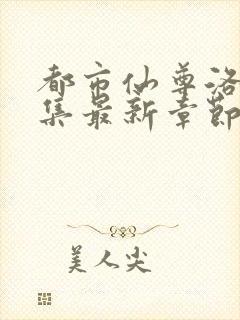 都市仙尊洛
集最新章节
美人尖